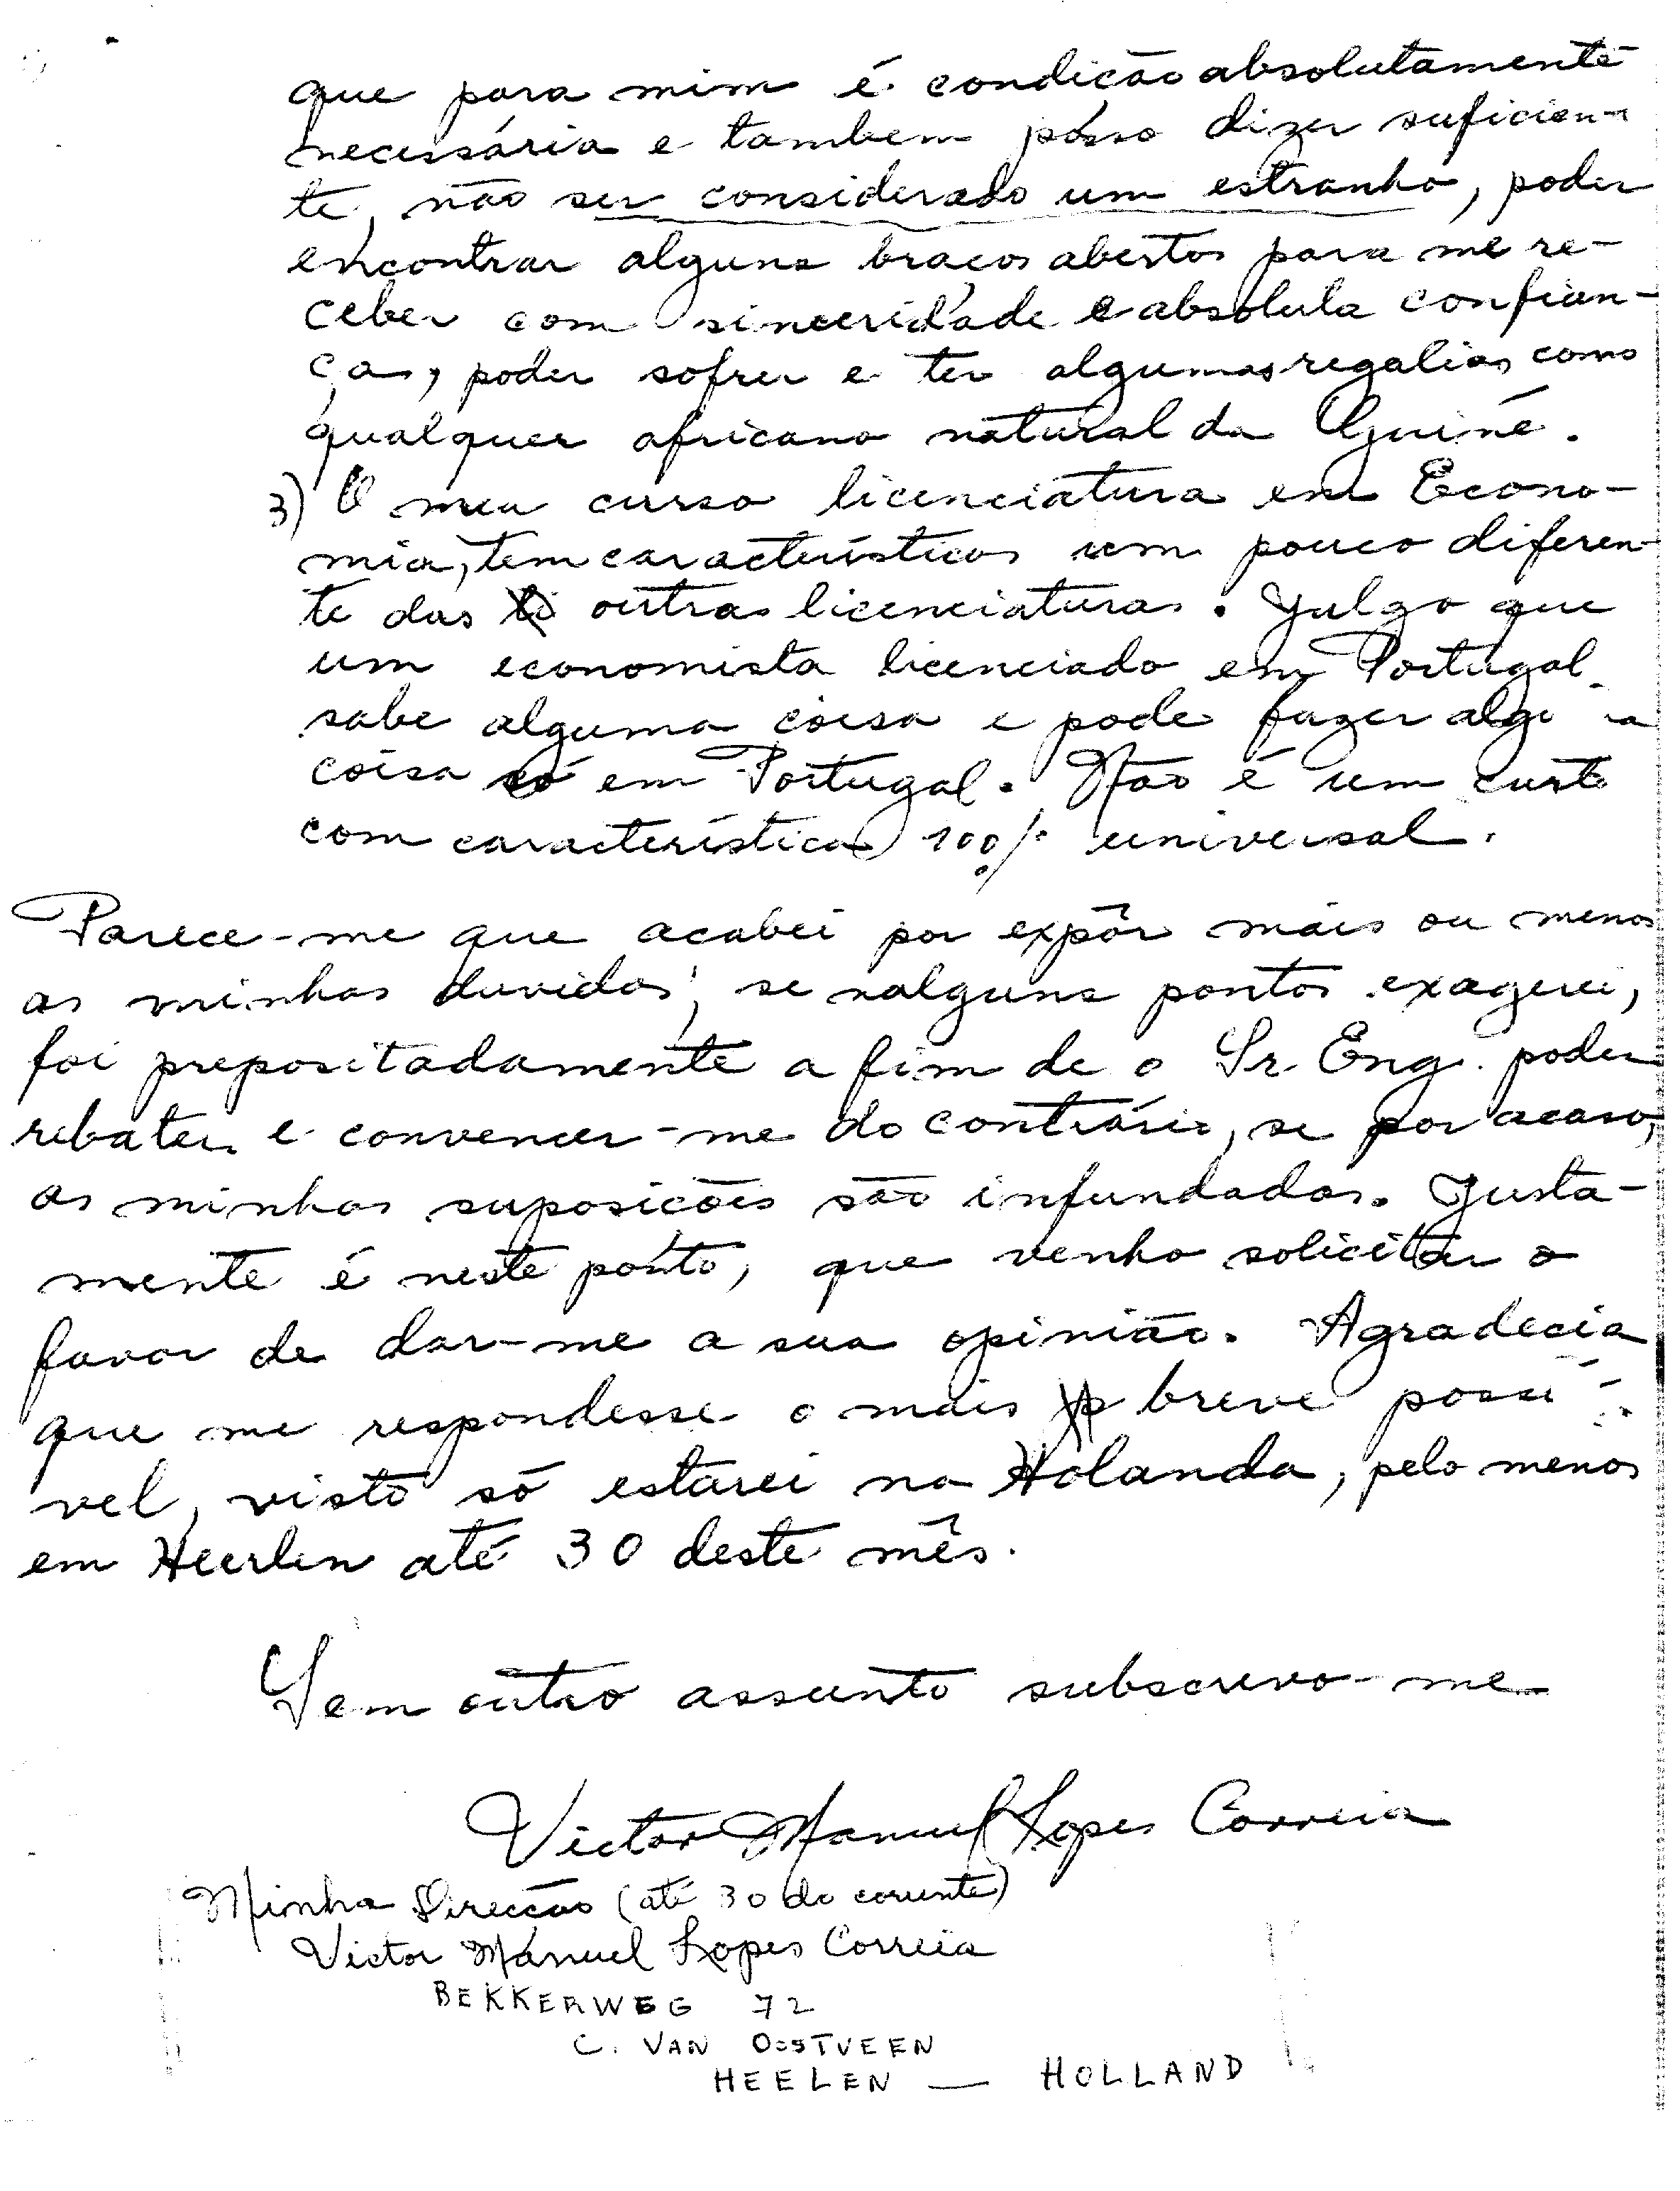 que para mim é condição absolutamente
necessária e tambem pósso dizer suficien-
te, não ser considerado um estranho, poder
encontrar alguns braços abertos para me re-
ceber com sinceridade e absoluta confian-
ça, poder sofrer e ter algumas regalias como
qualquer africano natural da Guiné.
3) O meu curso licenciatura em Econo-
mia, tem características um pouco diferen-
te das outras licenciaturas. Julgo que
um economista licenciado em Portugal
sabe alguma coisa e pode fazer algo
coisa só em Portugal. Não é um curso
com característica 100% universal.
Parece-me que acabei por expôr mais ou menos
as minhas duvidas; se nalguns pontos exagerei,
foi prepositadamente a fim de o Sr. Eng. poder
rebater e convencer-me do contrário, se por acaso,
as minhas suposições são infundadas. Justa-
mente é neste ponto, que venho solicitar o
favor de dar-me a sua opinião. Agradecia
que me respondesse o mais breve possí-
vel, visto só estarei na Holanda, pelo menos
em Heerlen até 30 deste mês.
Sem outro assunto subscrevo-me
Victor Manuel Lopes Correia
Minha Direcção (até 30 do corrente)
Victor Manuel Lopes Correia
BEKKERWEG 72
C. VAN OOSTVEEN
HEELEN — HOLLAND